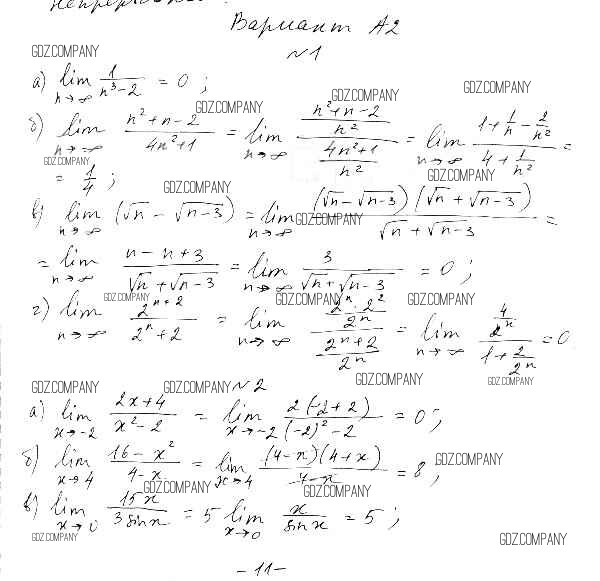 Вариант А2
GDZ.COMPANY
№1
GDZ.COMPANY
а) lim n→∞ 1/(n³-2) = 0 ;
GDZ.COMPANY
GDZ.COMPANY
б) lim n→∞ (n²+n-2)/(4n²+1) = lim n→∞ ((n²+n-2)/n²)/((4n²+1)/n²) = lim n→∞ (1+1/n-2/n²)/(4+1/n²) =
GDZ.COMPANY
GDZ.COMPANY
= 1/4 ;
GDZ.COMPANY
в) lim n→∞ (√n - √n-3) = lim n→∞ (√n - √n-3)(√n + √n-3)/(√n + √n-3) =
GDZ.COMPANY
= lim n→∞ (n-n+3)/(√n + √n-3) = lim n→∞ 3/(√n + √n-3) = 0 ;
GDZ.COMPANY
GDZ.COMPANY
GDZ.COMPANY
г) lim n→∞ 2ⁿ⁺²/(2ⁿ+2) = lim n→∞ (2ⁿ·2²/2ⁿ)/((2ⁿ+2)/2ⁿ) = lim n→∞ /(1+2/2ⁿ) = 0
GDZ.COMPANY
GDZ.COMPANY
GDZ.COMPANY
GDZ.COMPANY
№2
а) lim x→-2 (2x+4)/(x²-2) = lim x→-2 2(-2+2)/((-2)²-2) = 0 ;
б) lim x→4 (16-x²)/(4-x) = lim x→4 (4-x)(4+x)/(4-x) = 8 ;
GDZ.COMPANY
GDZ.COMPANY
GDZ.COMPANY
в) lim x→0 15x/(3 sin x) = 5 lim x→0 x/(sin x) = 5 ;
GDZ.COMPANY
GDZ.COMPANY
- 11 -